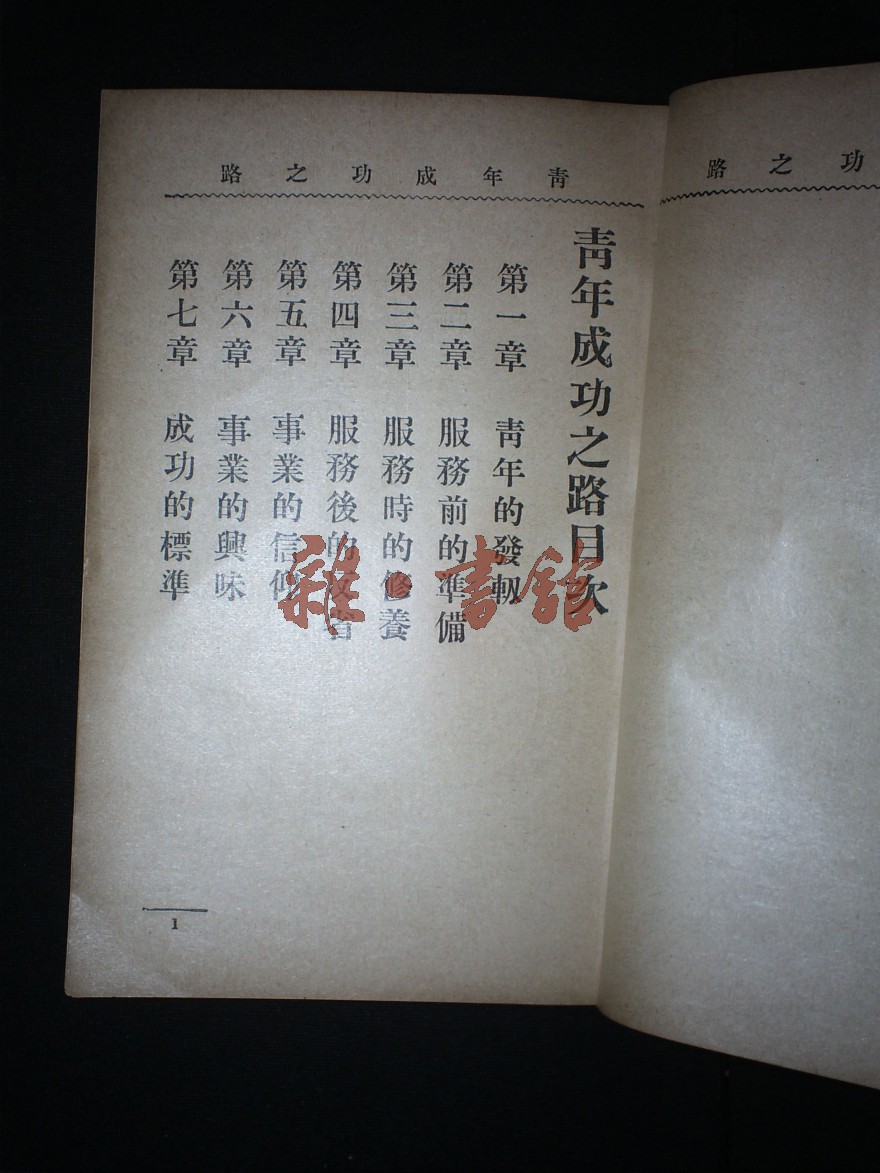 青年成功之路
青年成功之路目次
第一章 青年的發軔
第二章 服務前的準備
第三章 服務時的修養
第四章 服務後的反省
第五章 事業的信仰
第六章 事業的興味
第七章 成功的標準
1
功之路
雜·書館